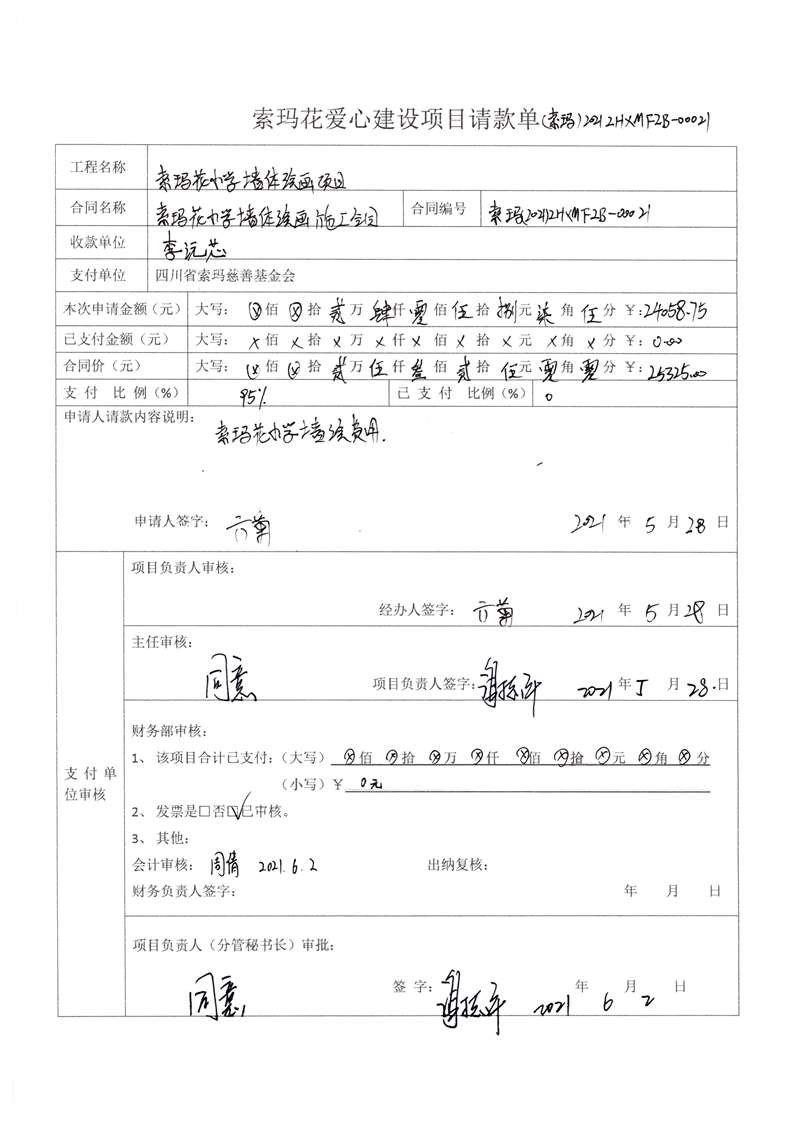 索玛花爱心建设项目请款单(索玛)2021ZHXMFZB-00021
工程名称 索玛花小学墙体绘画项目
合同名称 索玛花小学墙体绘画施工合同 合同编号 索玛2021ZHXMFZB-00021
收款单位 李沅芯
支付单位 四川省索玛慈善基金会
本次申请金额(元) 大写: ⊗佰⊗拾贰万肆仟零佰伍拾捌元柒角伍分 ¥:24058.75
已支付金额(元) 大写: ×佰×拾×万×仟×佰×拾×元×角×分 ¥:0.00
合同价(元) 大写: ⊗佰⊗拾贰万伍仟叁佰贰拾伍元零角零分 ¥:25325.00
支付 比例(%) 95% 已支付 比例(%) 0
申请人请款内容说明:
索玛花小学墙绘费用.
申请人签字: 2021年5月28日
项目负责人审核:
经办人签字: 2021年5月28日
主任审核:
同意 项目负责人签字: 2021年5月28.日
支付单位审核
财务部审核:
1、该项目合计已支付:(大写)⊗佰⊗拾⊗万⊗仟⊗佰⊗拾⊗元⊗角⊗分
(小写)¥ 0元
2、发票是□否☑已审核。
3、其他:
会计审核: 周倩 2021.6.2 出纳复核:
财务负责人签字: 年 月 日
项目负责人(分管秘书长)审批:
同意 签字: 2021年6月2日